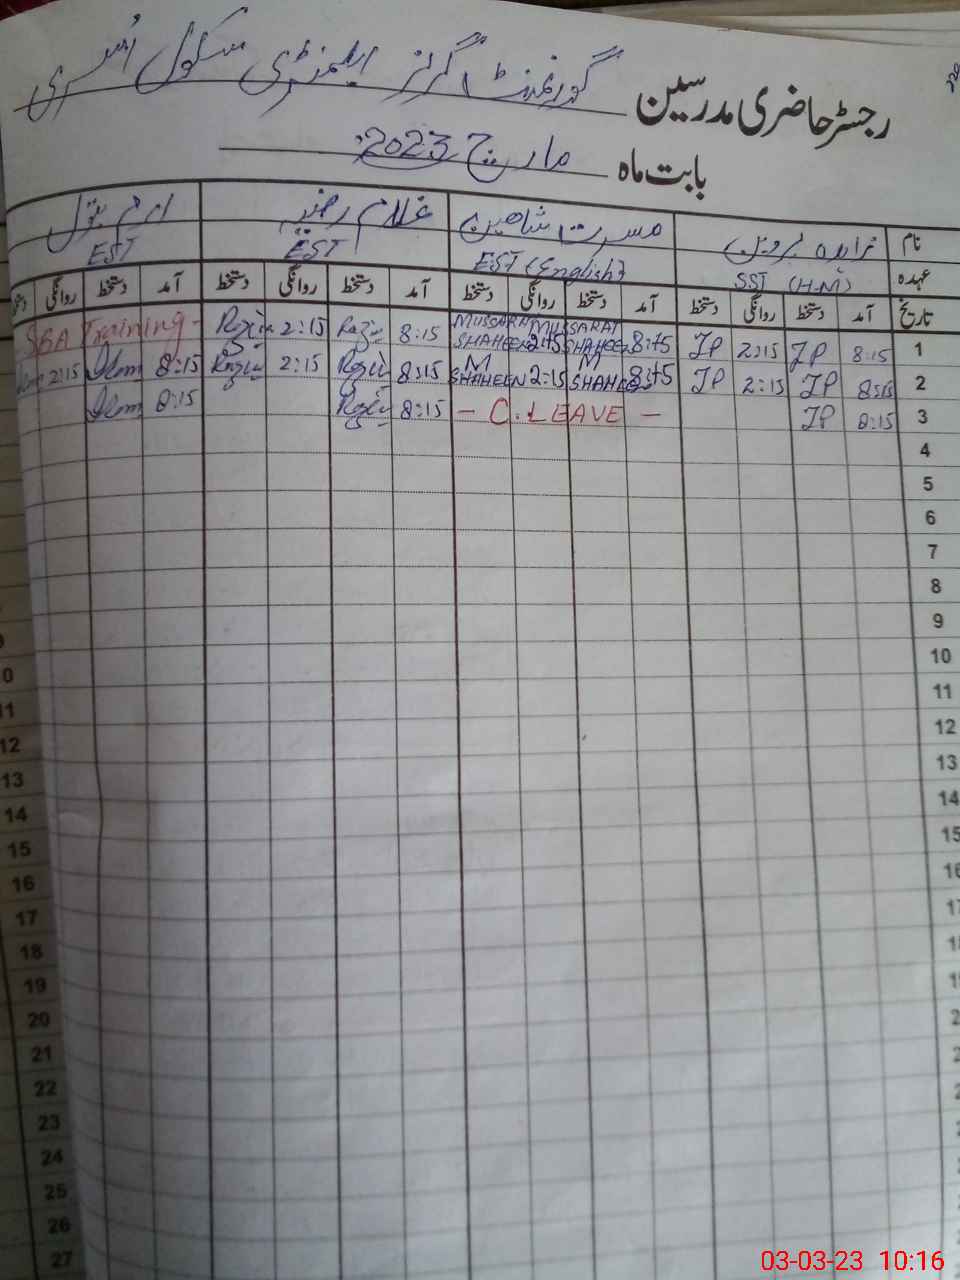 رجسٹر حاضری مدرسین گورنمنٹ گرلز ایلیمنٹری سکول
بابت ماہ مارچ 2023
نام زاہدہ پروین مسرت شاہین غلام رضیہ ارم بتول
عہدہ SST (H.M) EST (English) EST EST
تاریخ آمد دستخط روانگی دستخط آمد دستخط روانگی دستخط آمد دستخط روانگی دستخط آمد دستخط روانگی
1 8:15 JP 2:15 JP 8:15 MUSSARAT SHAHEEN 2:15 MUSSARAT SHAHEEN 8:15 Razia 2:15 Razia SBA Training -
2 8:15 JP 2:15 JP 8:15 M SHAHEEN 2:15 M SHAHEEN 8:15 Razia 2:15 Razia 8:15 Irum 2:15
3 8:15 JP - C.LEAVE - 8:15 Razia 8:15 Irum
4
5
6
7
8
9
10
11
12
13
14
15
16
17
18
19
20
21
22
23
24
25
26
27
03-03-23 10:16